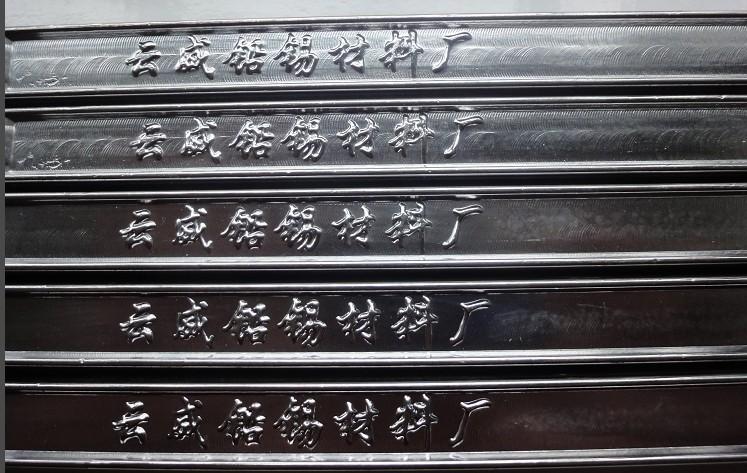 云威铦锡材料厂
云威铦锡材料厂
云威铦锡材料厂
云威铦锡材料厂
云威铦锡材料厂